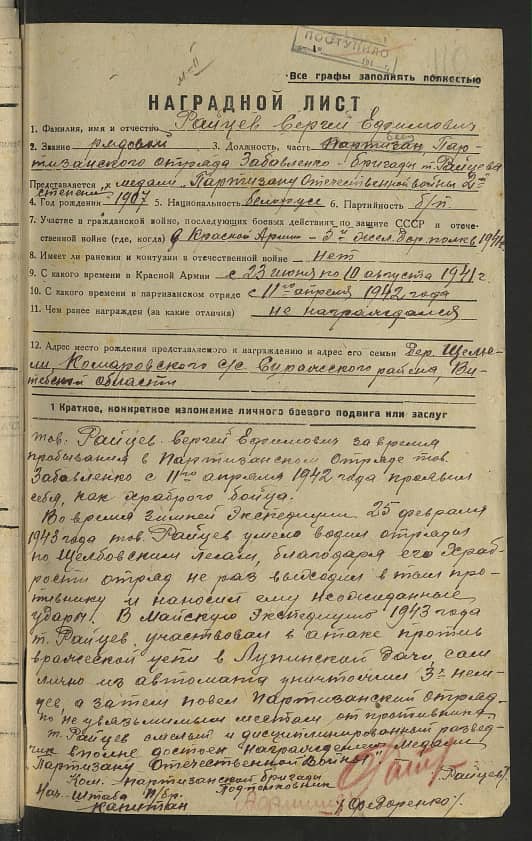 ПОСТУПИЛО
110
Все графы заполнять полностью
НАГРАДНОЙ ЛИСТ
1. Фамилия, имя и отчество Райцев Сергей Ефимович
2. Звание рядовой 3. Должность, часть Партизан Пар-
тизанского отряда Забавленко - бригады т. Райцева
Представляется к медали "Партизану Отечественной войны" 2й
степени
4. Год рождения 1907 5. Национальность белорусс 6. Партийность б/п.
7. Участие в гражданской войне, последующих боевых действиях по защите СССР и отече-
ственной войне (где, когда) В Красной Армии - 5й жел. дор. полк в 1941 г.
8. Имеет ли ранения и контузии в отечественной войне нет
9. С какого времени в Красной Армии с 23 июня по 10 августа 1941 г.
10. С какого времени в партизанском отряде с 11го апреля 1942 года
11. Чем ранее награжден (за какие отличия) не награждался
12. Адрес место рождения представляемого к награждению и адрес его семьи Дер.
Комаровского с/с Суражсского района, Ви-
тебской области
1 Краткое, конкретное изложение личного боевого подвига или заслуг
тов. Райцев Сергей Ефимович за время
пробывания в Партизанском отряде тов.
Забавленко с 11го апреля 1942 года проявил
себя, как храброго бойца.
Во время Зимней Экспедиции 25 февраля
1943 года тов. Райцев умело водил отряды
по Щелбовским лесам, благодаря его храб-
рости отряд не раз выходил в тыл про-
тивнику и наносил ему неожиданные
удары. В Майскую Экспедицию 1943 года
т. Райцев участвовал в атаке против
вражеской цепи в Лупинский Дачи сам
лично из автомата уничтожил 3х нем-
цев, а затем повел Партизанский отряд
по не уязвымым местам от противника
т. Райцев смелый и дисциплинированный развед-
чик вполне достоен награждения медали
"Партизану Отечественной Войны"
Ком. Партизанской бригады
Подполковник /Райцев/
Нач. Штаба П/Бр.
Капитан /Федоренко/